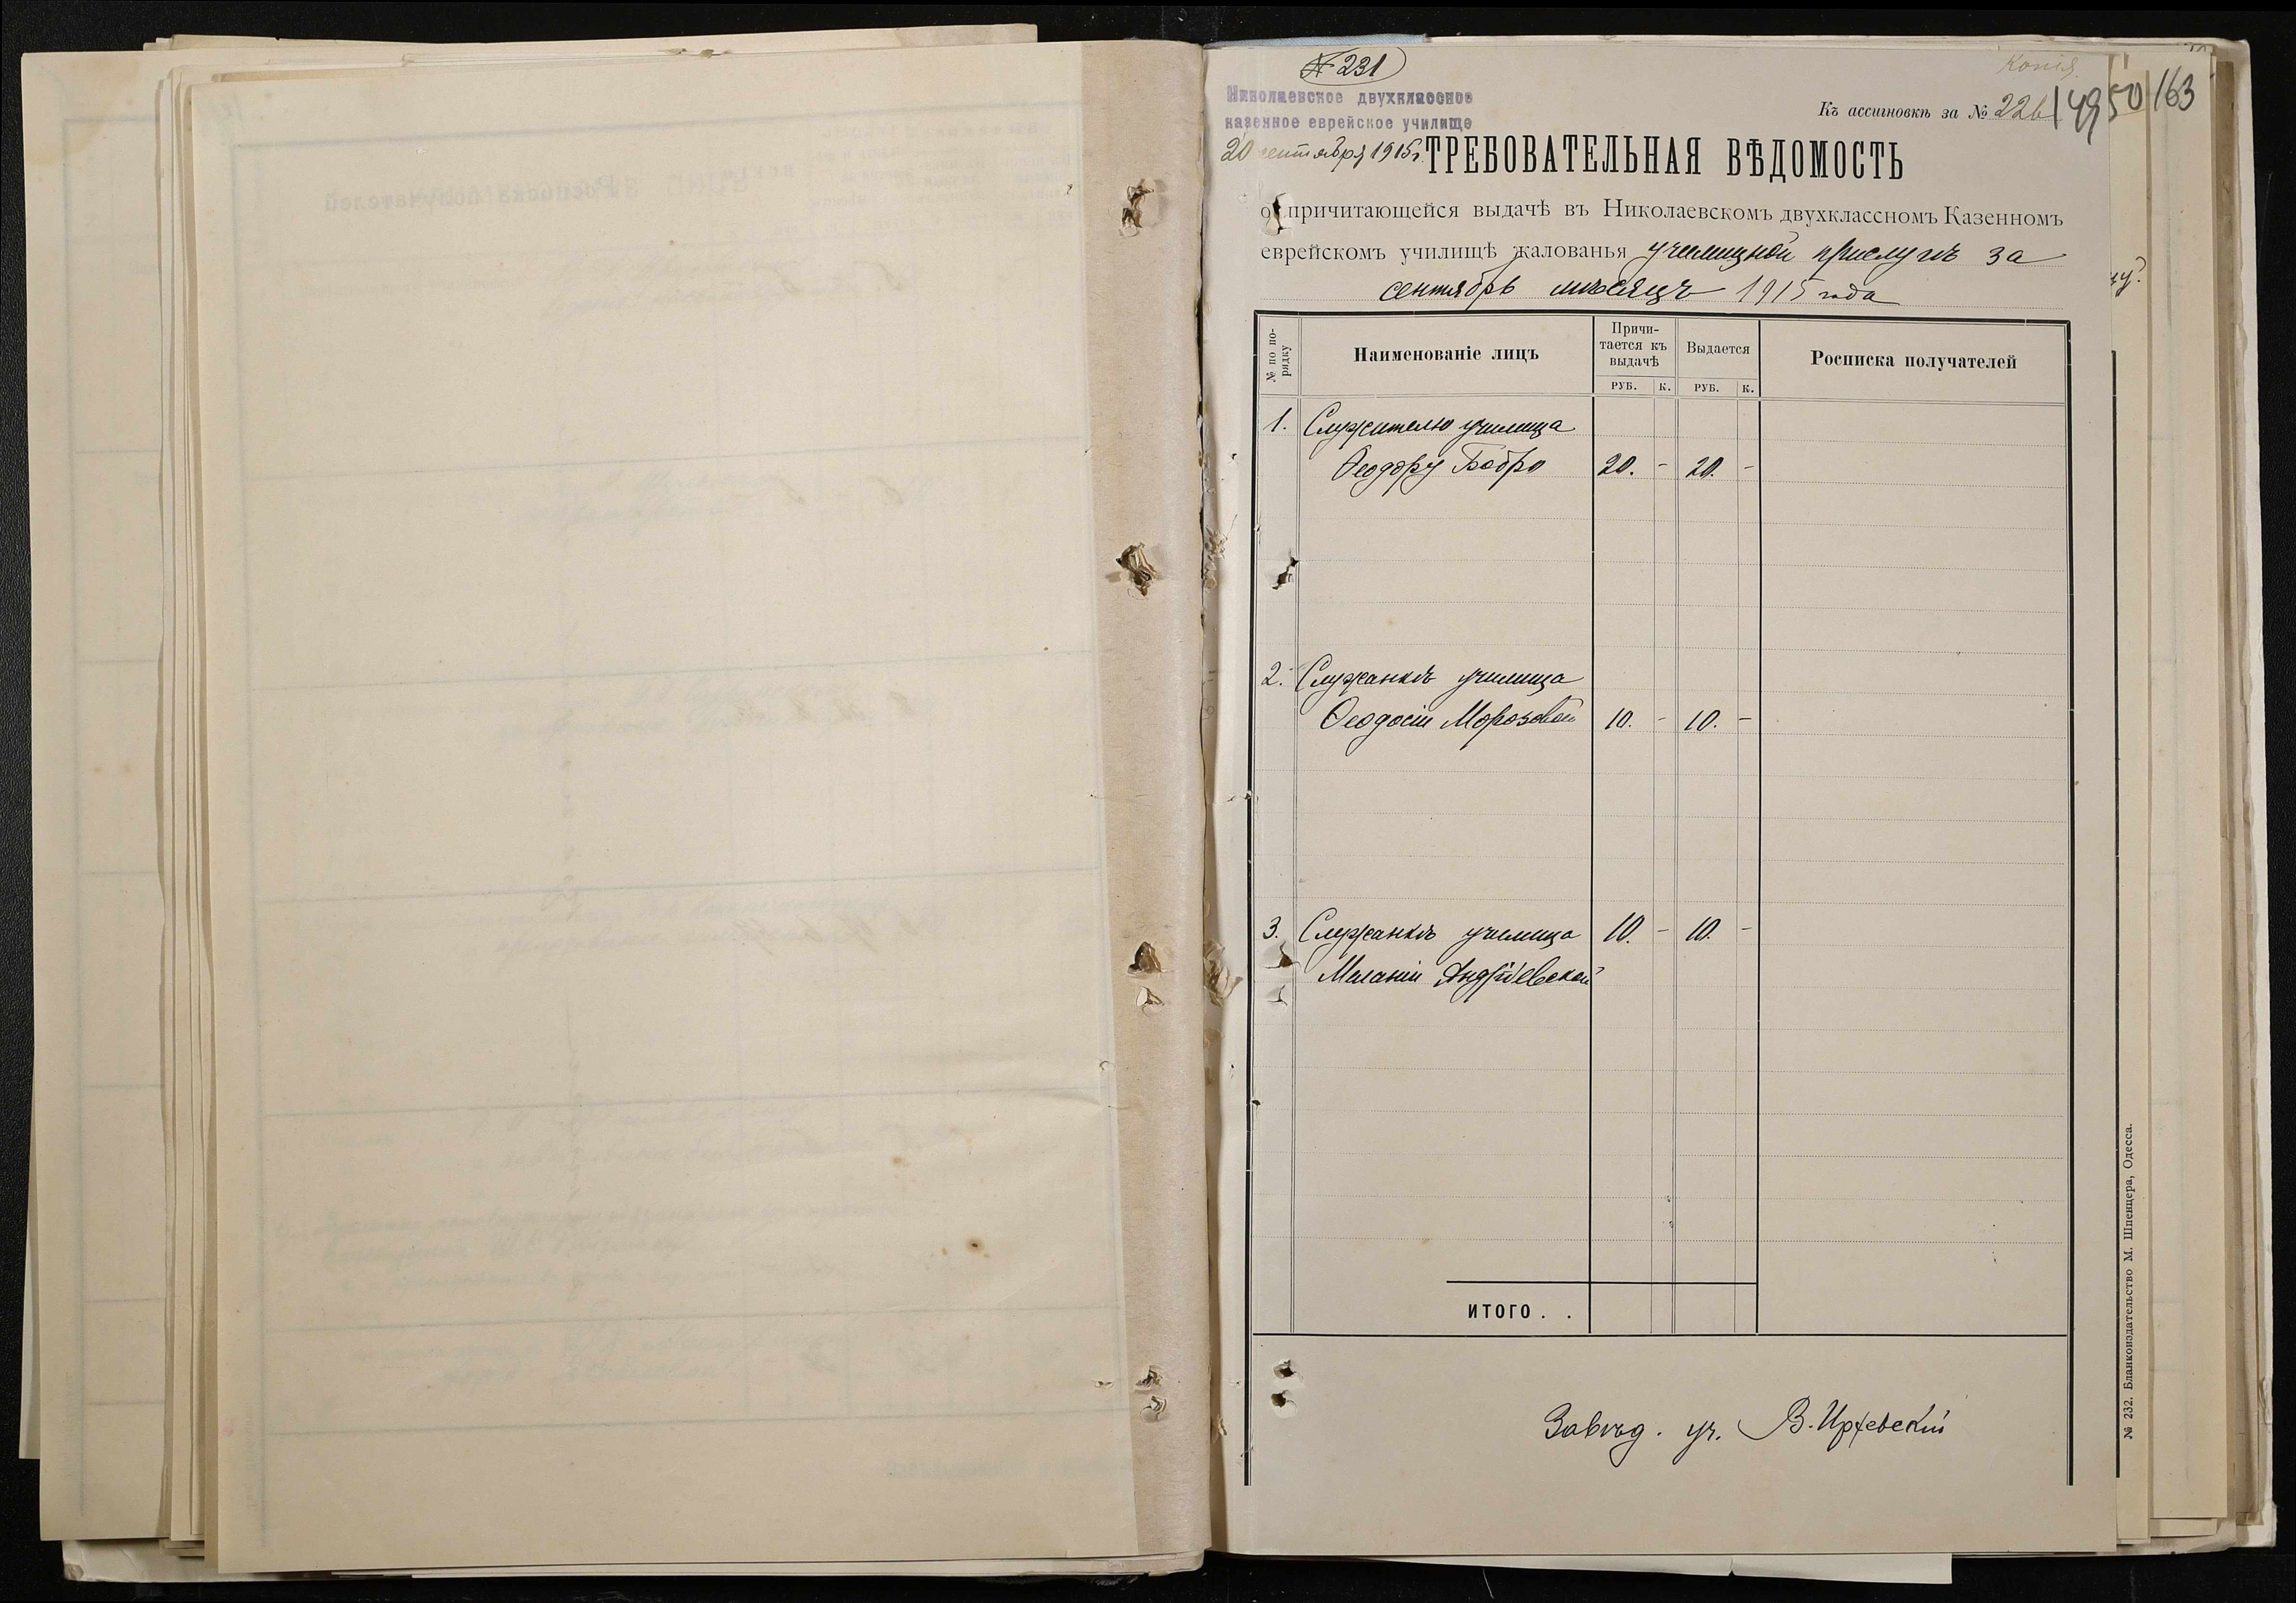 № 231
Копія
Николаевское двухклассное
казенное еврейское училище
20 сентября 1915г.
Къ ассигновкѣ за № 226
149 50 163
ТРЕБОВАТЕЛЬНАЯ ВѢДОМОСТЬ
о причитающейся выдачѣ въ Николаевскомъ двухклассномъ Казенномъ
еврейскомъ училищѣ жалованья училищной прислугѣ за
сентябрь мѣсяцъ 1915 года
№ по по-
рядку
Наименованіе лицъ
Причи-
тается къ
выдачѣ
Выдается
Росписка получателей
РУБ. К. РУБ. К.
1. Служителю училища
Ѳеодору Бобро 20. - 20. -
2. Служанкѣ училища
Ѳеодосіи Морозовой 10. - 10. -
3. Служанкѣ училища 10. - 10. -
Меланіи Андріевской
ИТОГО . .
Завѣд. уч. В. Иржевскій
№ 232. Бланкоиздательство М. Шпенцера, Одесса.